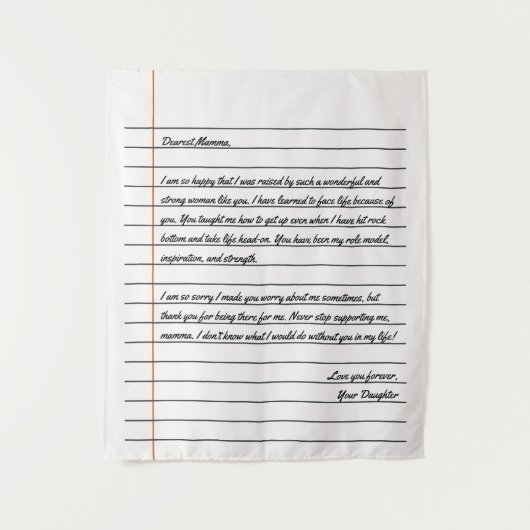 Dearest Mamma,
I am so happy that I was raised by such a wonderful and
strong woman like you. I have learned to face life because of
you. You taught me how to get up even when I have hit rock
bottom and take life head-on. You have been my role model,
inspiration, and strength.
I am so sorry I made you worry about me sometimes, but
thank you for being there for me. Never stop supporting me,
mamma. I don't know what I would do without you in my life!
Love you forever,
Your Daughter